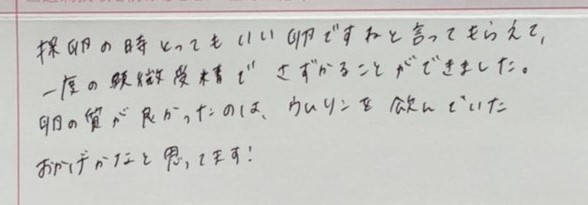 採卵の時とってもいい卵ですねと言ってもらえて、
一度の顕微受精でさずかることができました。
卵の質が良かったのは、ウムリンを飲んでいた
おかげかなと思ってます!